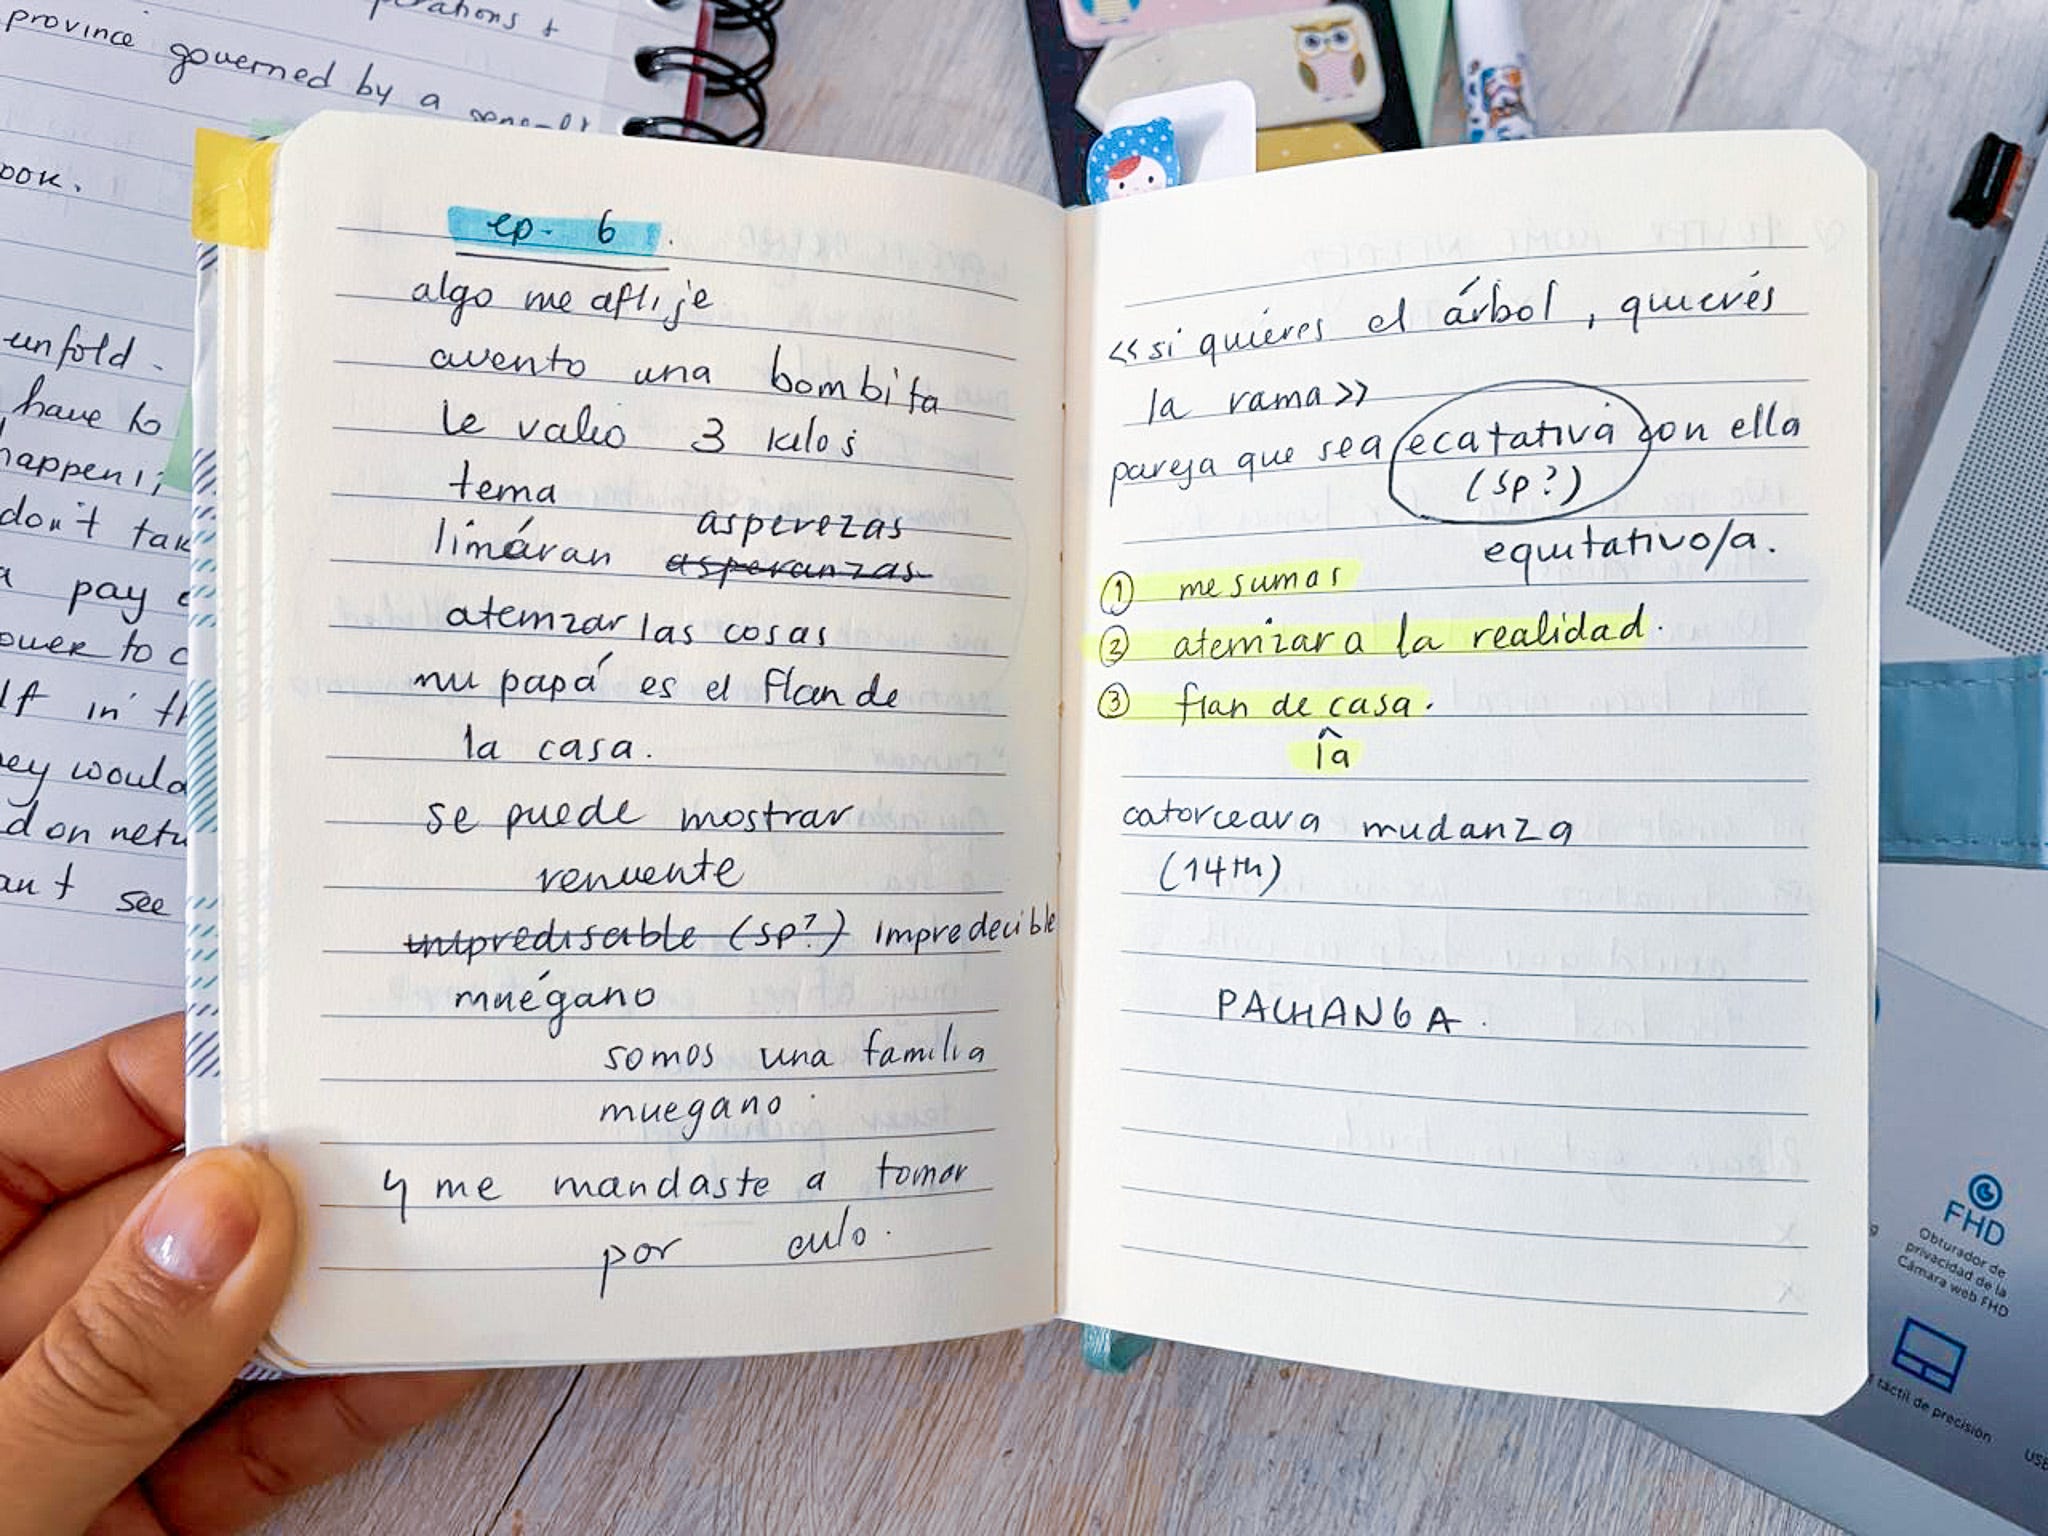 province governed by a
ook.
unfold.
have to
happen i;
don't tak
a pay
ower to c
lf in th
hey would
d on netw
an't see
ep. 6
algo me aflije
avento una bombita
le valio 3 kilos
tema
asperezas
limáran asperanzas
atemzar las cosas
mi papá es el flan de
la casa.
se puede mostrar
renuente
unipredisable (sp?) impredecible
muégano
somos una familia
muegano.
y me mandaste a tomar
por culo.
<<si quieres el árbol, quierés
la rama>>
pareja que sea ecatativa con ella
(sp?)
equitativo/a.
① me sumas
② atemizar a la realidad.
③ flan de casa.
^
la
catorceava mudanza
(14th)
PACHANGA.
FHD
Obturador de
privacidad de la
Cámara web FHD
táctil de precisión
USB